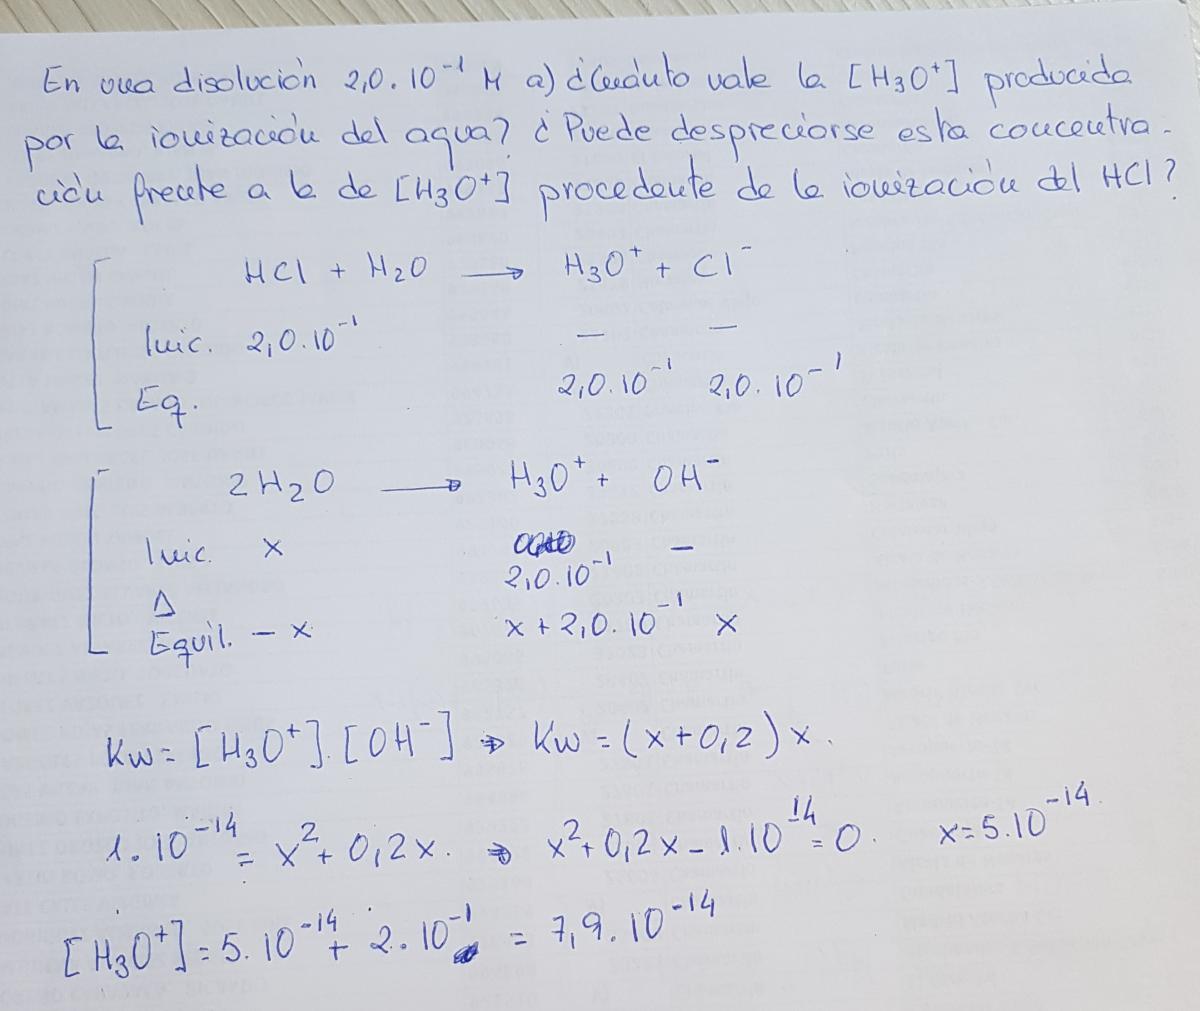 En una disolución 2,0.10⁻¹ M a) ¿Cuánto vale la [H₃O⁺] producida
por la ionización del agua? ¿Puede despreciarse esta concentra-
ción frente a la de [H₃O⁺] procedente de la ionización del HCl?
HCl + H₂O → H₃O⁺ + Cl⁻
Inic. 2,0.10⁻¹ — —
Eq. 2,0.10⁻¹ 2,0.10⁻¹
2H₂O → H₃O⁺ + OH⁻
Inic. x 2,0.10⁻¹ —
Δ
Equil. – x x + 2,0.10⁻¹ x
Kw = [H₃O⁺].[OH⁻] ⇒ Kw = (x+0,2)x.
1.10⁻¹⁴ = x² + 0,2x. ⇒ x² + 0,2x – 1.10⁻¹⁴ = 0. x = 5.10⁻¹⁴.
[H₃O⁺] = 5.10⁻¹⁴ + 2.10⁻¹ = 7,9.10⁻¹⁴